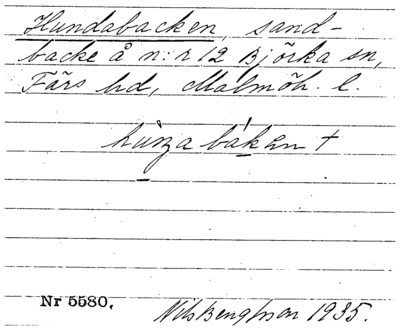 Hundabacken, sand-
backe å n:r 12 Björka sn,
Färs hd, Malmöh. l.
bákęn +
Nr 5580.
Nils Bengtsson 1935.